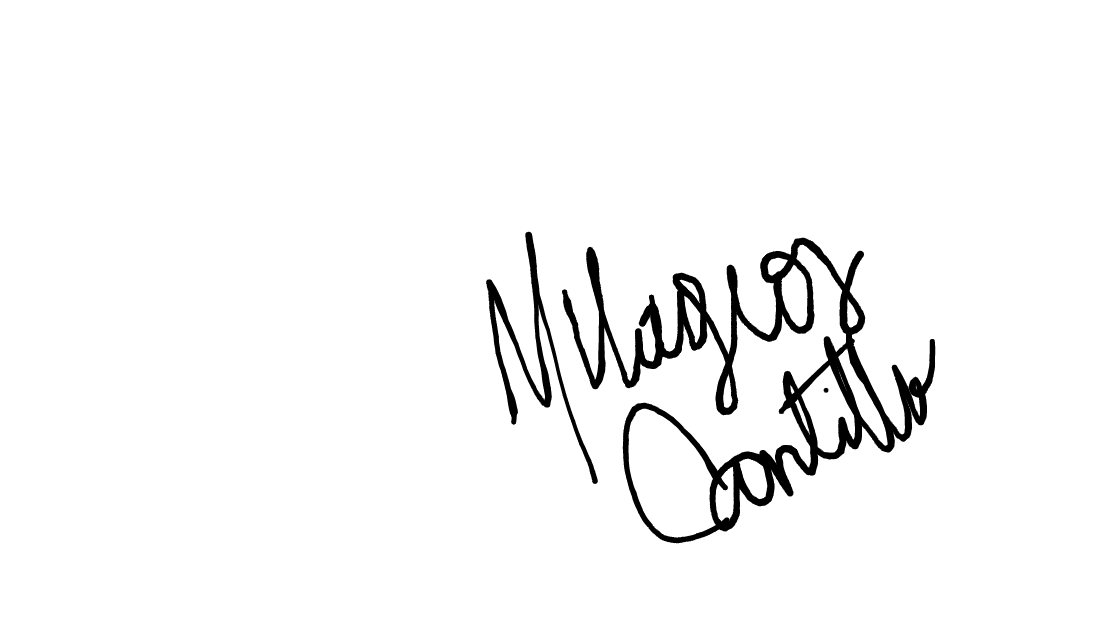 Milagros
Cantillo